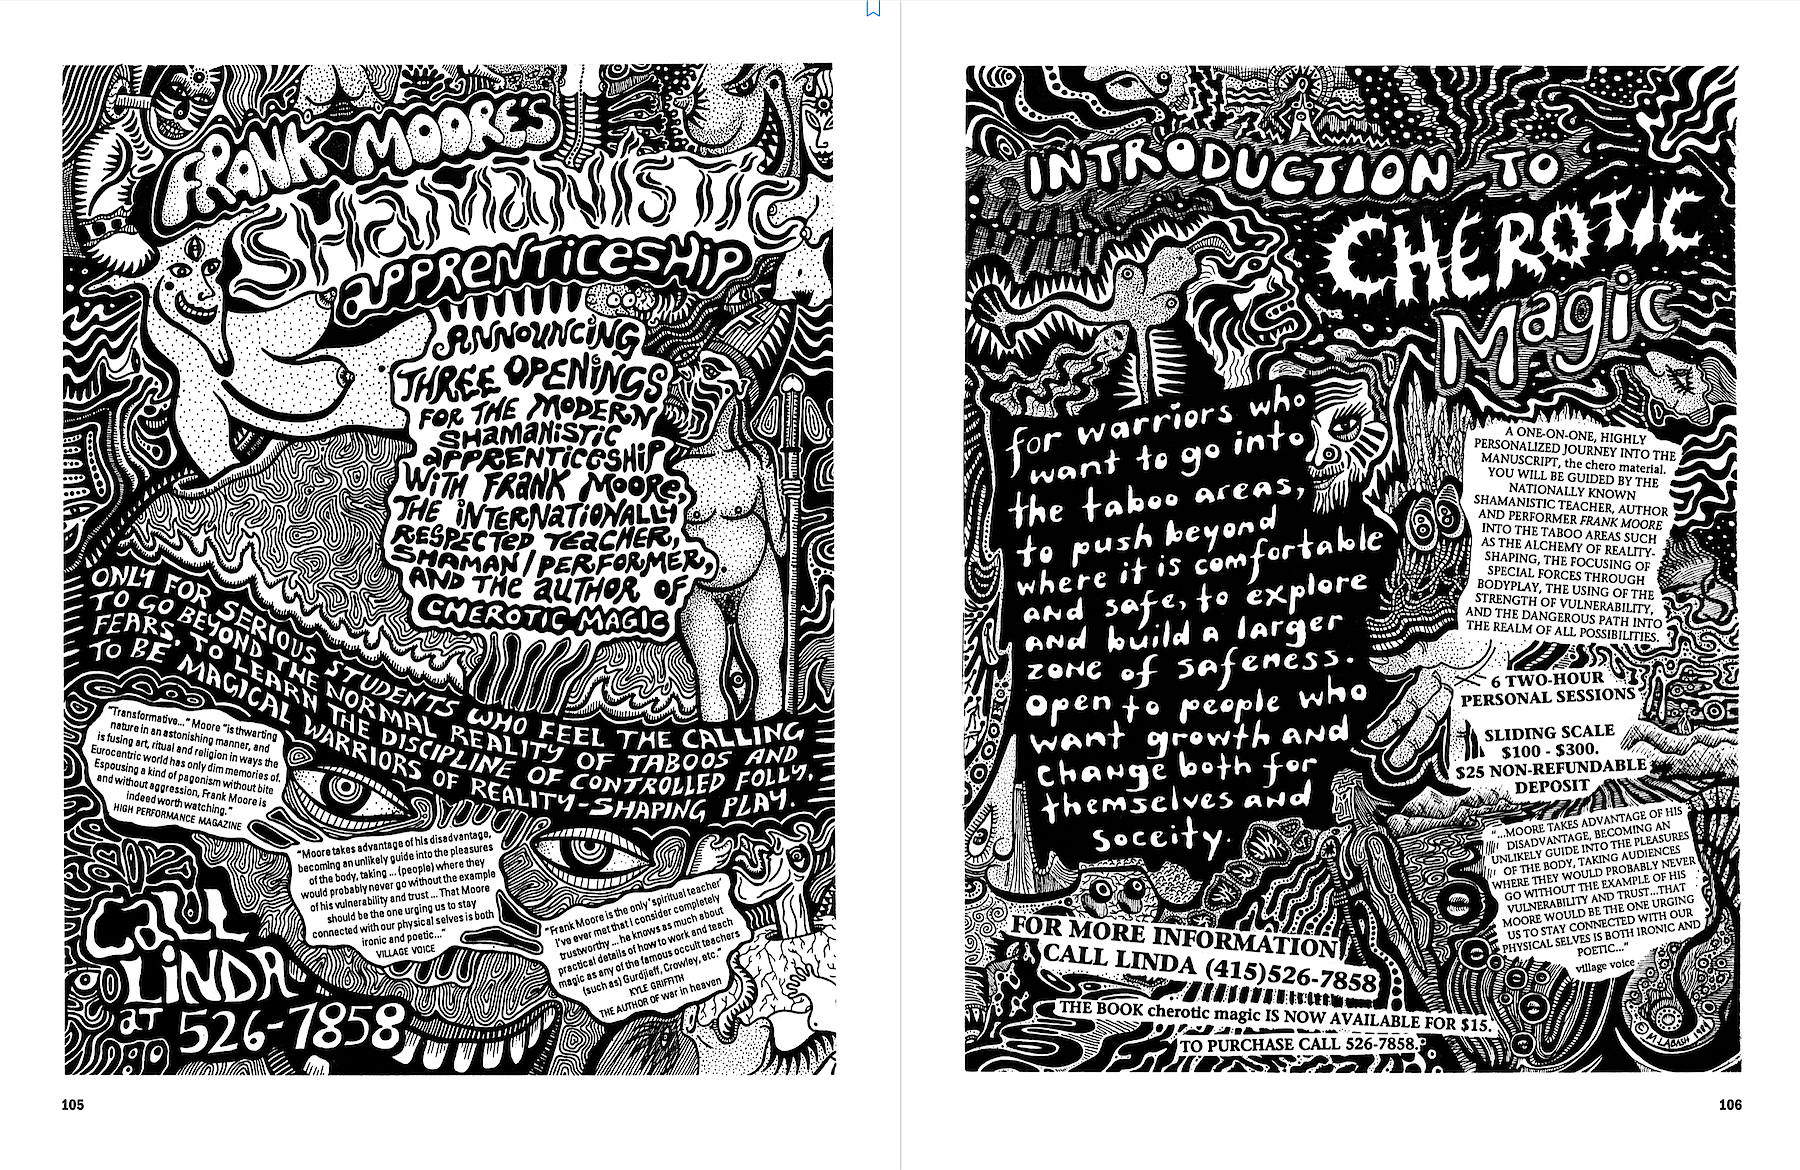 FRANK MOORE'S
SHAMANISTIC
APPRENTICESHIP
ANNOUNCING
THREE OPENINGS
FOR THE MODERN
SHAMANISTIC
APPRENTICESHIP
WITH FRANK MOORE,
THE INTERNATIONALLY
RESPECTED TEACHER,
SHAMAN/PERFORMER,
AND THE AUTHOR OF
CHEROTIC MAGIC
ONLY FOR SERIOUS STUDENTS WHO FEEL THE CALLING
TO GO BEYOND THE NORMAL REALITY OF TABOOS AND
FEARS, TO LEARN THE DISCIPLINE OF CONTROLLED FOLLY,
TO BE MAGICAL WARRIORS OF REALITY-SHAPING PLAY.
"Transformative..." Moore "is thwarting
nature in an astonishing manner, and
is fusing art, ritual and religion in ways the
Eurocentric world has only dim memories of.
Espousing a kind of paganism without bite
and without aggression, Frank Moore is
indeed worth watching."
HIGH PERFORMANCE MAGAZINE
"Moore takes advantage of his disadvantage,
becoming an unlikely guide into the pleasures
of the body, taking ... (people) where they
would probably never go without the example
of his vulnerability and trust ... That Moore
should be the one urging us to stay
connected with our physical selves is both
ironic and poetic..."
VILLAGE VOICE
"Frank Moore is the only 'spiritual teacher'
I've ever met that I consider completely
trustworthy ... he knows as much about
practical details of how to work and teach
magic as any of the famous occult teachers
(such as) Gurdjieff, Crowley, etc."
KYLE GRIFFITH
THE AUTHOR OF war in heaven
CALL
LINDA
AT 526-7858
105
INTRODUCTION TO
CHEROTIC
Magic
for warriors who
want to go into
the taboo areas,
to push beyond
where it is comfortable
and safe, to explore
and build a larger
zone of safeness.
Open to people who
want growth and
change both for
themselves and
soceity.
A ONE-ON-ONE, HIGHLY
PERSONALIZED JOURNEY INTO THE
MANUSCRIPT, the chero material.
YOU WILL BE GUIDED BY THE
NATIONALLY KNOWN
SHAMANISTIC TEACHER, AUTHOR
AND PERFORMER FRANK MOORE
INTO THE TABOO AREAS SUCH
AS THE ALCHEMY OF REALITY-
SHAPING, THE FOCUSING OF
SPECIAL FORCES THROUGH
BODYPLAY, THE USING OF THE
STRENGTH OF VULNERABILITY,
AND THE DANGEROUS PATH INTO
THE REALM OF ALL POSSIBILITIES.
6 TWO-HOUR
PERSONAL SESSIONS
SLIDING SCALE
$100 - $300.
$25 NON-REFUNDABLE
DEPOSIT
"...MOORE TAKES ADVANTAGE OF HIS
DISADVANTAGE, BECOMING AN
UNLIKELY GUIDE INTO THE PLEASURES
OF THE BODY, TAKING AUDIENCES
WHERE THEY WOULD PROBABLY NEVER
GO WITHOUT THE EXAMPLE OF HIS
VULNERABILITY AND TRUST...THAT
MOORE WOULD BE THE ONE URGING
US TO STAY CONNECTED WITH OUR
PHYSICAL SELVES IS BOTH IRONIC AND
POETIC..."
village voice
FOR MORE INFORMATION
CALL LINDA (415)526-7858
THE BOOK cherotic magic IS NOW AVAILABLE FOR $15.
TO PURCHASE CALL 526-7858.
LABASH
106